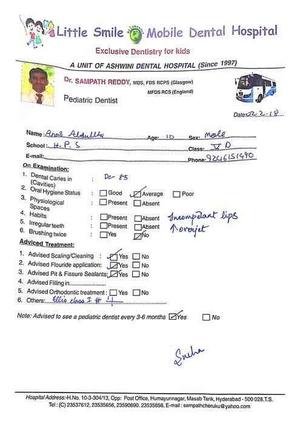 Little Smile Mobile Dental Hospital
Exclusive Dentistry for kids
A UNIT OF ASHWINI DENTAL HOSPITAL (Since 1997)
Dr. SAMPATH REDDY, MDS, FDS RCPS (Glasgow)
MFDS RCS (England)
Pediatric Dentist
Date: 22-2-18
Name: Anas Abdullla Age: 10 Sex: Male
School: H.P.S Class: V D
E-mail: Phone: 9246151490
On Examination:
1. Dental Caries in (Cavities) : Dc- 85
2. Oral Hygiene Status : Good Average Poor
3. Physiological Spaces : Present Absent
4. Habits : Present Absent Incompetant lips
5. Irregular teeth : Present Absent ↑ overjet
6. Brushing twice : Yes No
Adviced Treatment:
1. Advised Scaling/Cleaning : Yes No
2. Advised Flouride application: Yes No
3. Advised Pit & Fissure Sealants: Yes No
4. Advised Filling in
5. Advised Orthodontic treatment : Yes No
6. Others: Ellis class I # 4
Note: Advised to see a pediatric dentist every 3-6 months Yes No
Sneha
Hospital Address:-H.No. 10-3-304/13, Opp: Post Office, Humayunnagar, Masab Tank, Hyderabad - 500 028.T.S.
Tel : (C) 23537612, 23535656, 23590690, 23535698. E-mail : sampathcheruku@yahoo.com